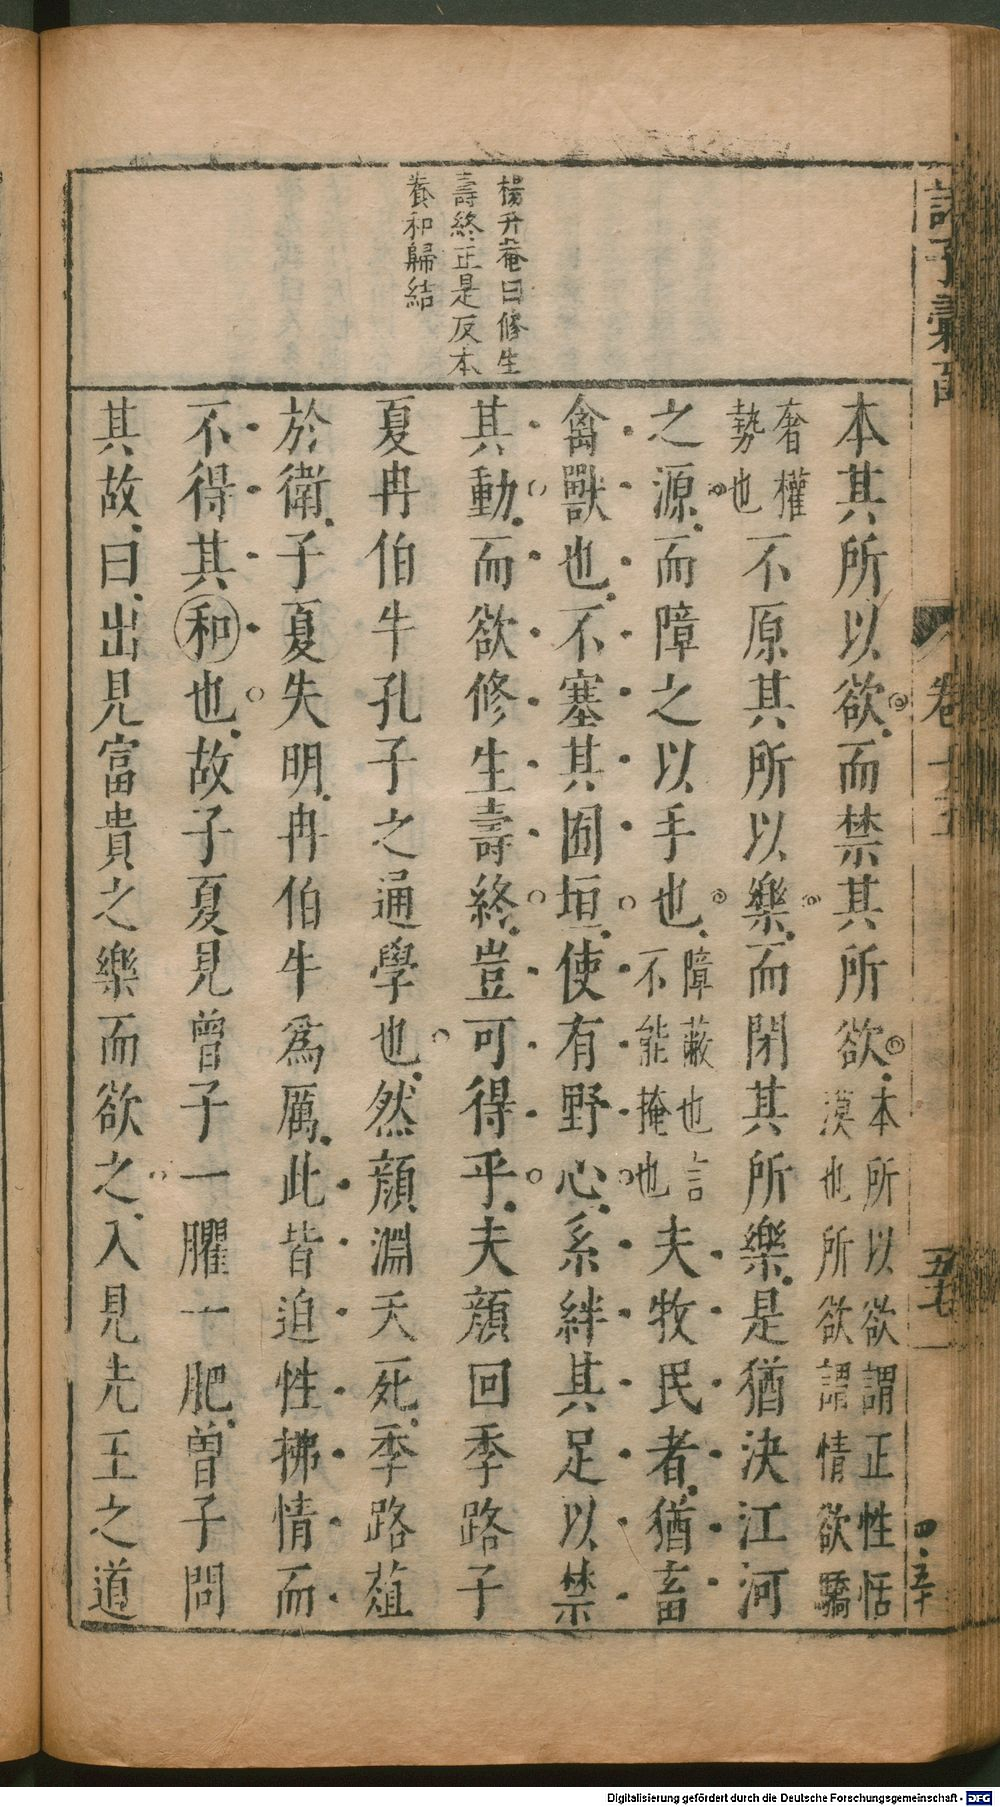 楊升菴曰修生
壽終正是反本
養和歸結
本其所以欲而禁其所欲本所以欲謂正性恬漠也所欲謂情欲驕
奢權勢也不原其所以樂而閉其所樂是猶決江河
之源而障之以手也障蔽也言不能掩也夫牧民者猶畜
禽獸也不塞其囿垣使有野心系絆其足以禁
其動而欲修生壽終豈可得乎夫顏回季路子
夏冉伯牛孔子之通學也然顏淵夭死季路葅
於衛子夏失明冉伯牛為厲此皆迫性拂情而
不得其和也故子夏見曾子一臞一肥曾子問
其故曰出見富貴之樂而欲之入見先王之道
諸子彙函
卷十五
五十七
Digitalisierung gefördert durch die Deutsche Forschungsgemeinschaft - DFG